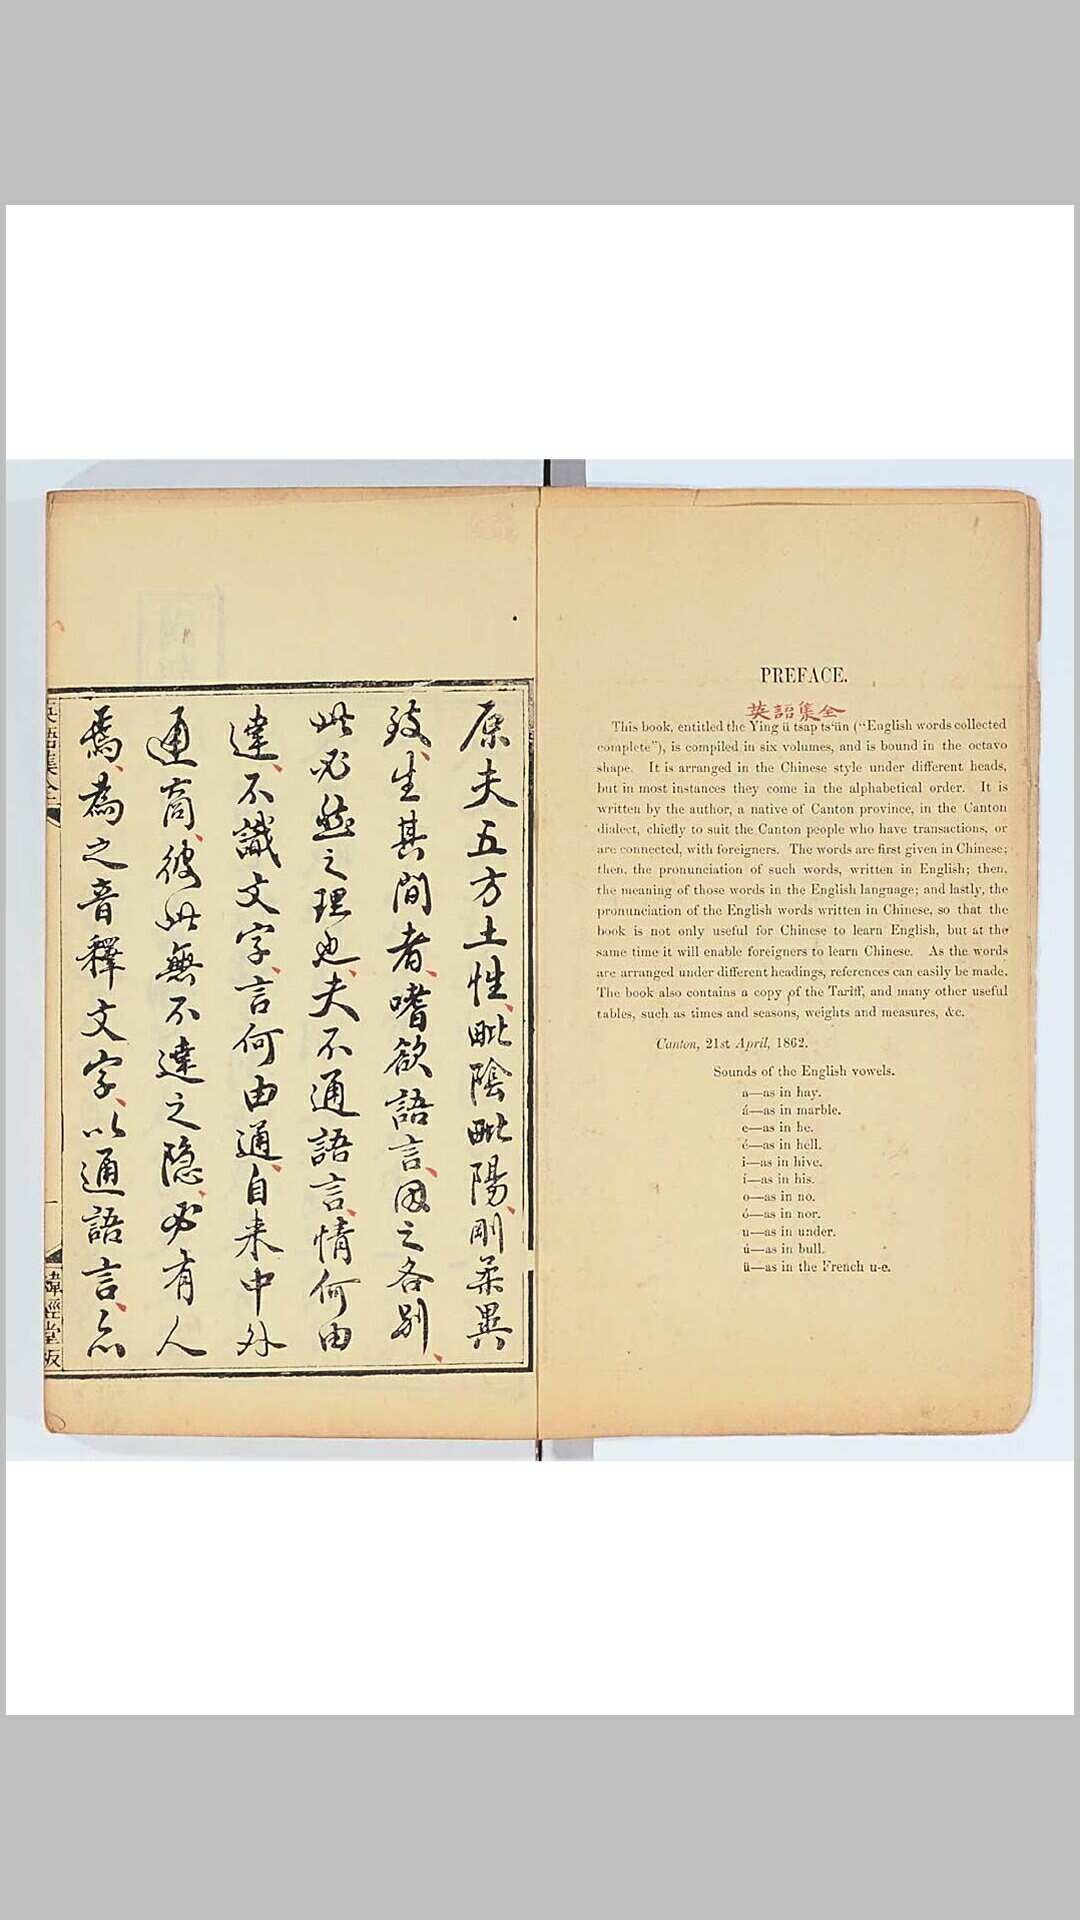 PREFACE.
英語集全
This book, entitled the Ying ü tsap ts‘ün (“English words collected
complete”), is compiled in six volumes, and is bound in the octavo
shape. It is arranged in the Chinese style under different heads,
but in most instances they come in the alphabetical order. It is
written by the author, a native of Canton province, in the Canton
dialect, chiefly to suit the Canton people who have transactions, or
are connected, with foreigners. The words are first given in Chinese;
then, the pronunciation of such words, written in English; then,
the meaning of those words in the English language; and lastly, the
pronunciation of the English words written in Chinese, so that the
book is not only useful for Chinese to learn English, but at the
same time it will enable foreigners to learn Chinese. As the words
are arranged under different headings, references can easily be made.
The book also contains a copy of the Tariff, and many other useful
tables, such as times and seasons, weights and measures, &c.
Canton, 21st April, 1862.
Sounds of the English vowels.
a—as in hay.
á—as in marble.
e—as in he.
é—as in hell.
i—as in hive.
í—as in his.
o—as in no.
ó—as in nor.
u—as in under.
ú—as in bull.
ü—as in the French u-e.
原夫五方土性、毗陰毗陽、剛柔異
致、生其間者、嗜欲語言、因之各別、
此必然之理也、夫不通語言、情何由
達、不識文字、言何由通、自来中外
通商、彼此無不達之隐、必有人
焉、為之音釋文字、以通語言、而
英語集全
一
緯經堂版